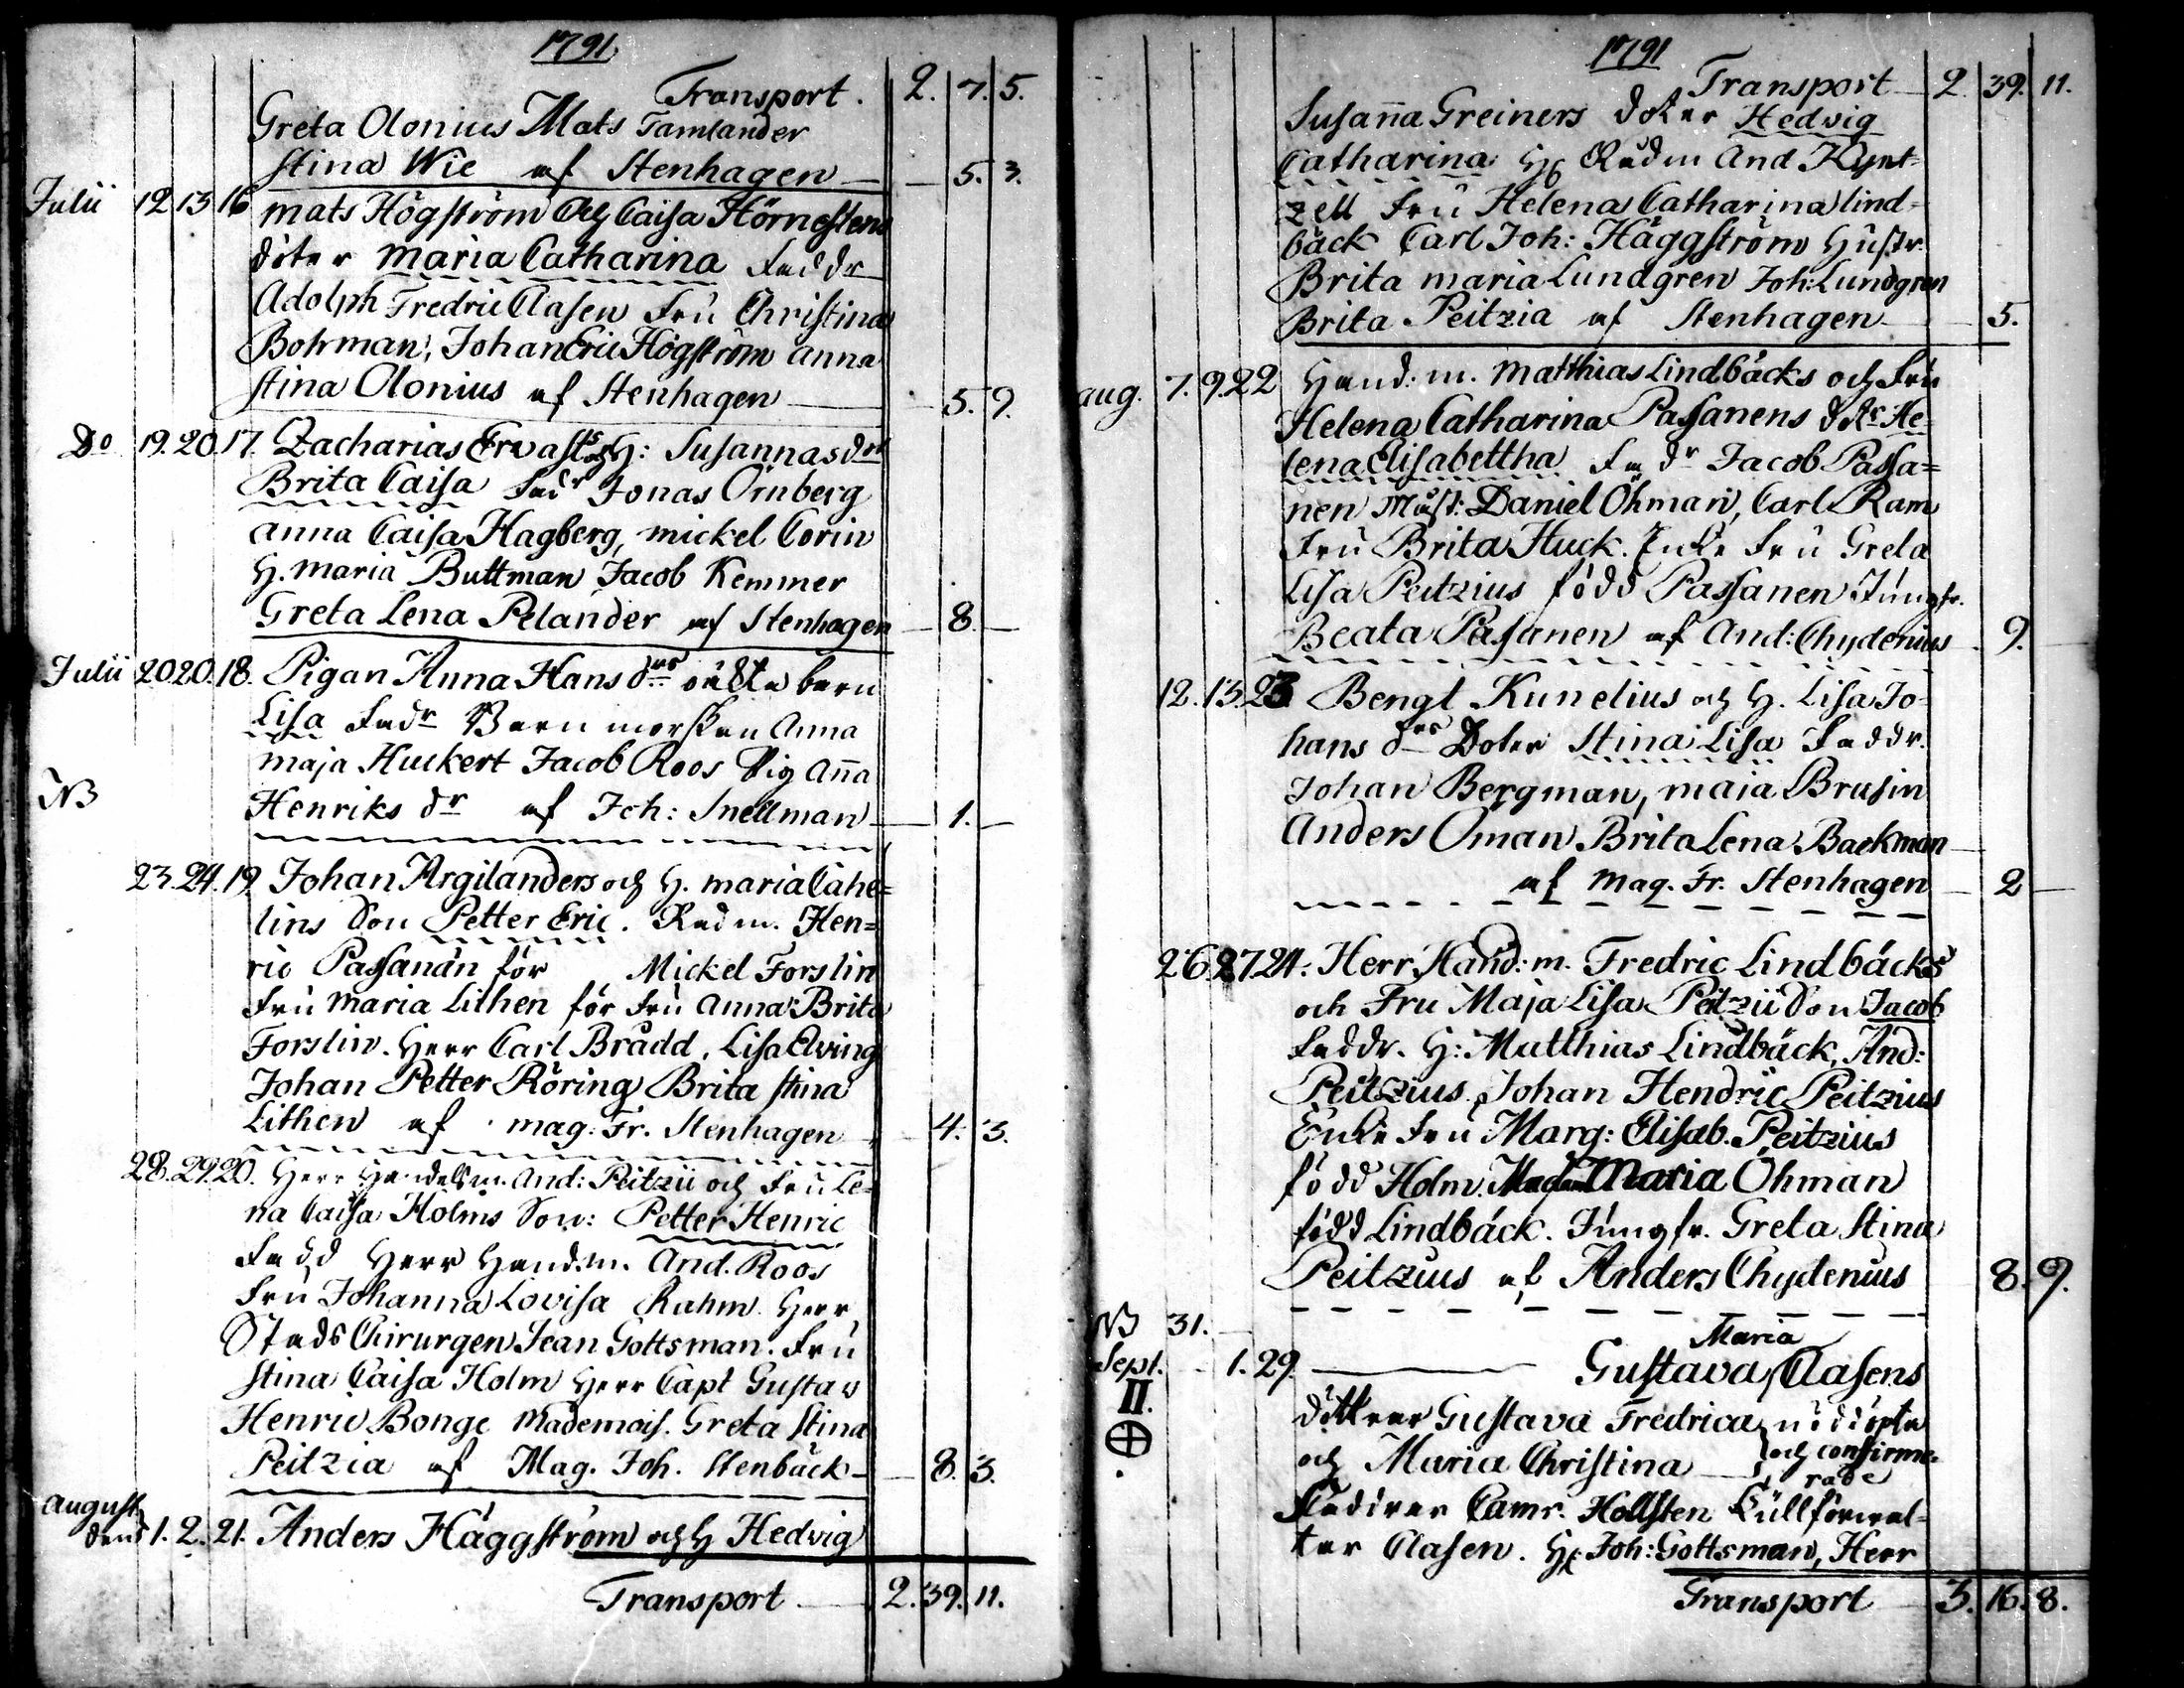 1791
Transport. 2. 7. 5.
Greta Olonius Mats Tamlander
Stina Wie af Stenhagen — 5. 3.
Julii 12 13 16 Mats Högström och Caisa Hörnestens
doter Maria Catharina Faddr
Adolph Fredric Clasen Fru Christina
Bohrman, Johan Eric Högström Anna
Stina Olonius af Stenhagen — 5. 9.
Do 19. 20. 17. Zacharias Ervasts och H: Susannas dr
Brita Caisa Fadr Jonas Örnberg
Anna Caisa Hagberg, Mickel Corin
H. Maria Buttman Jacob Kemmer
Greta Lena Pelander af Stenhagen — 8. —
Julii 20 20. 18. Pigan Anna Hans drs oächta barn
Lisa Fadr Barnmorskan Anna
Maja Huckert Jacob Roos Pig Aña
NB
Henriks dr af Joh: Snellman — 1. —
23. 24. 19. Johan Argilanders och H. Maria Cahe=
lins Son Petter Eric. Radm. Hen=
ric Passanän för Mickel Forslin
Fru Maria Lithen för Fru Anna Brita
Forslin. Herr Carl Brådd, Lisa Elving
Johan Petter Röring Brita Stina
Lithen af mag. Fr. Stenhagen — 4. 3.
28. 29. 20. Herr Handelsm. And: Peitzii och Fru Le=
na Caisa Holms Son: Petter Henric
Fadd Herr Handm. And. Roos
Fru Johanna Lovisa Rahm. Herr
Stads Chirurgen Jean Gottsman. Fru
Stina Caisa Holm Herr Capt Gustav
Henric Bonge Mademois. Greta Stina
Peitzia af Mag. Joh. Stenbäck — 8. 3.
August
dens 1. 2. 21. Anders Häggström och H Hedvig
Transport — 2. 39. 11.
1791
Transport — 2. 39. 11.
Susaña Greiners doter Hedvig
Catharina H Rådm And Kynt=
zell Fru Helena Catharina Lind=
bäck Carl Joh: Häggström Hustr.
Brita Maria Lundgren Joh: Lundgren
Brita Peitzia af Stenhagen — 5.
Aug. 7. 9. 22 Hand: m. Matthias Lindbäcks och Fru
Helena Catharina Passanens dotr He=
lena Elisabettha Fadr Jacob Passa=
nen Must: Daniel Öhman, Carl Ram
Fru Brita Huck. Enke Fru Greta
Lisa Peitzius född Passanen Jungfr.
Beata Passanen af And: Chydenius — 9. —
12. 13. 23 Bengt Kunelius och H. Lisa Jo=
hans drs Doter Stina Lisa Faddr.
Johan Bergman, Maja Brusin
Anders Öman Brita Lena Backman —
af mag. Fr. Stenhagen — 2 —
26 27 24: Herr Hand: m. Fredric Lindbäcks
och Fru Maja Lisa Peitzii Son Jacob
Faddr. H: Matthias Lindbäck, And:
Peitzius. Johan Hendric Peitzius
Enke Fru Marg: Elisab. Peitzius
född Holm. Maria Öhman
född Lindbäck. Jungfr. Greta Stina
Peitzius af Anders Chydenius 8. 9.
NB 31. —
Maria
Sept. — 1. 29. — Gustava Clasens
II.
döttrar Gustava Fredrica nöddöpta
och Maria Christina — och confirme=
rade
Faddrar Camr. Hollsten Tullförval=
ter Clasen. H Joh: Gottsman, Herr
Transport — 3. 16. 8.